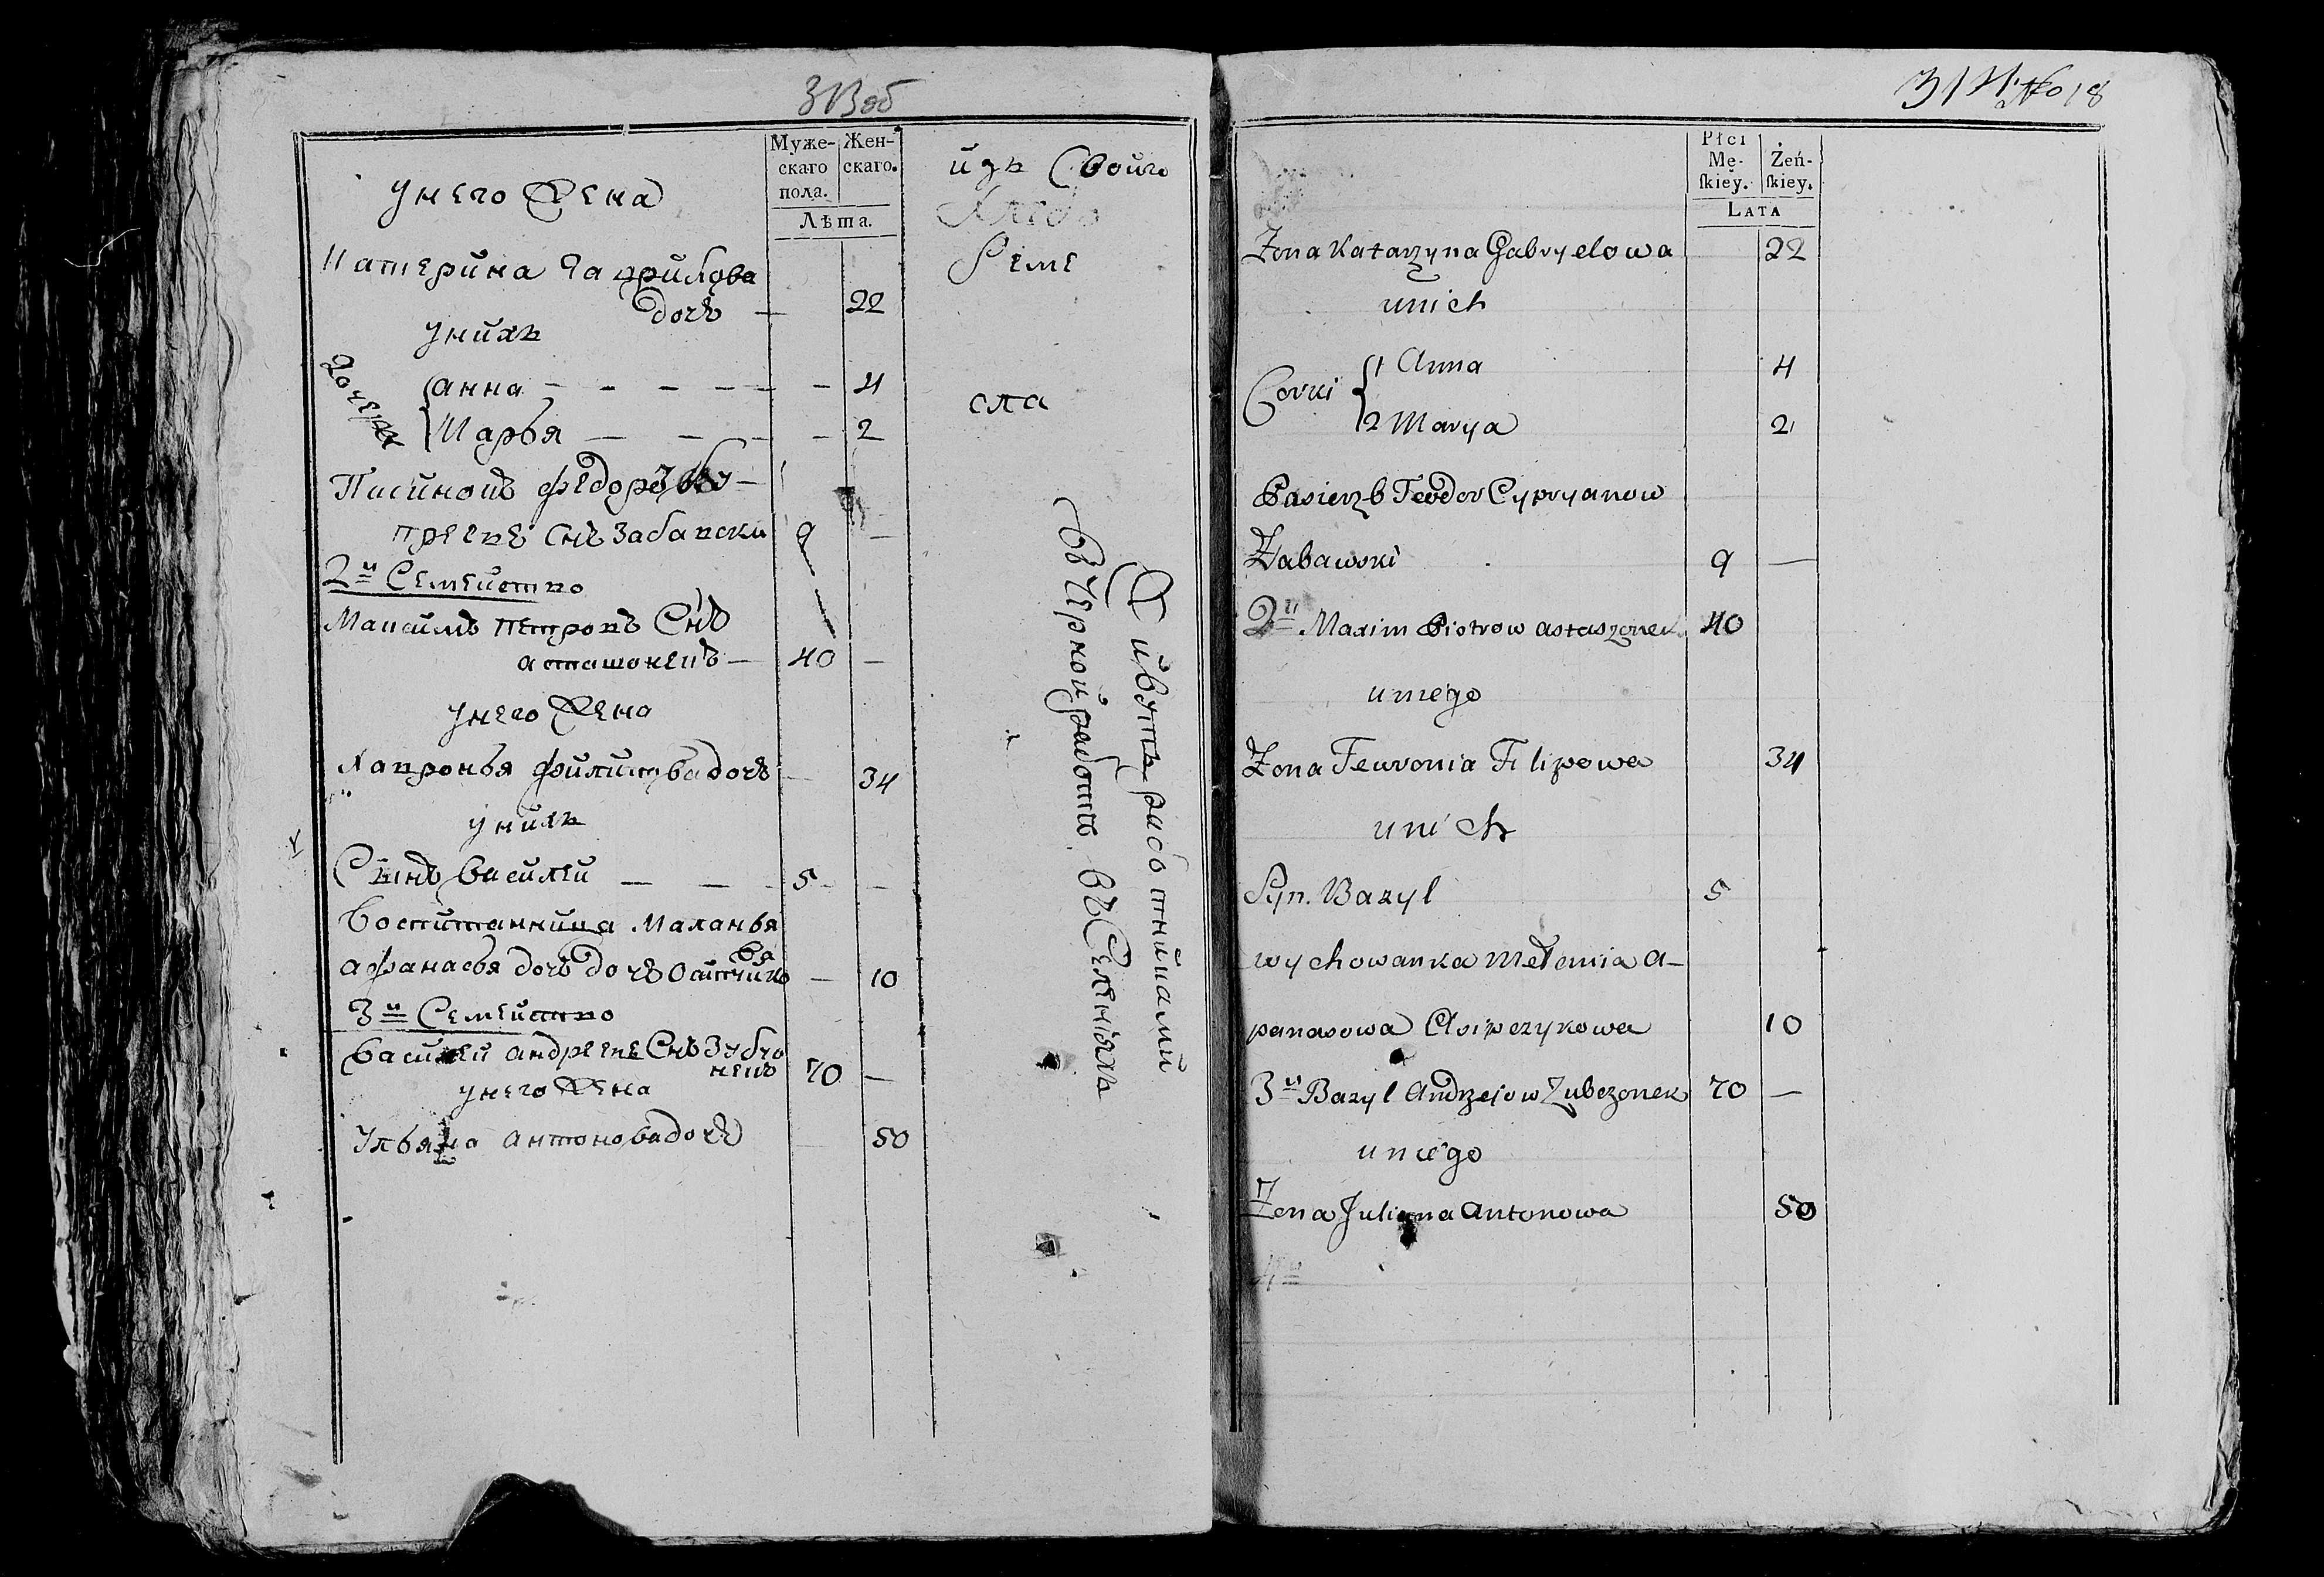 313 об
Муже-
скаго
пола.
Жен-
скаго.
Лѣта.
у него Жена
Катерина Гаврилова
дочъ — 22
у нихъ
дочеря
Анна — — — — — — 4
Марья — — — — 2
Пасинокъ федоръ Ку-
преевъ Снъ Забавски 9 —
2й Семейство
Максимъ Петровъ Снъ
асташонекъ — 40 —
у него Жена
Хавронья филипова дочъ — 34
у нихъ
Сынъ василей — — — 5 — —
воспитанница Маланья
афанасья дочъ дочъ Осипчикъ — 10
вя
3й Семейство
василей андреевъ Снъ Зубчо
некъ 70 —
у него Жена
Ульяна антонова дочъ 50
изъ Своиго
Реме
сла
Живутъ работниками
въ черной работъ въ Селѣнияхъ
314 No 18
Płci
Mę-
skiey.
Żeń-
skiey.
LATA
Żona Katarzyna Gabryelowa 22
u nich
Corki { 1 Anna 4
2 Marya 2
Pasierzb Teodor Cypryanow
Zabawski 9 —
2й Maxim Piotrow astaszonek 40
u niego
Żona Feuronia Filipowa 34
u nich
Syn. Bazyl 5
wychowanka Melania A-
panasowa Osipczykowa 10
3й Bazyl Andrzejow Zubczonek 70 —
u niego
Żona Juliana Antonowa 50
4й